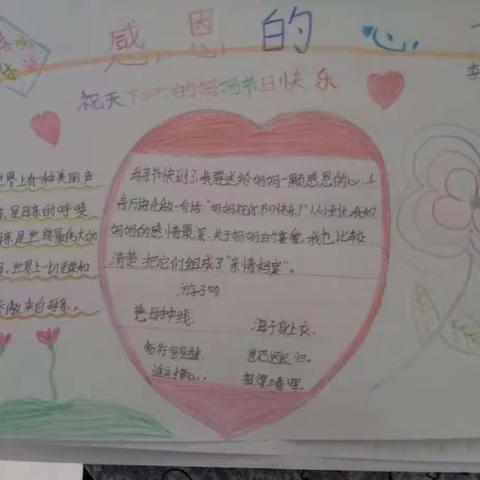 感恩的心
祝天下所有的妈妈节日快乐
世界上有一种美丽声
是母亲的呼唤
是世间最伟大的
世界上一切光荣和
来自母亲。
母亲节快到了我要送给妈妈一颗感恩的心,千
言万语化做一句话:"妈妈祝你节日快乐!"从小到大我和
妈妈的感情最深。关于妈妈的喜爱,我也比较
清楚把它们组成了"亲情档案"。
游子吟
慈母手中线,
游子身上衣,
临行密密缝,
意恐迟迟归。
谁言寸草心,
报得三春晖。